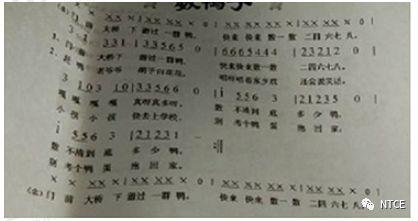 数鸭子
X X X X X X X 0 X X X X X X X X X 0
(念)门 前 大桥 下 游过 一群 鸭, 快来 快来 数一数 二四六七八。
3 1 3 3 1 | 3 3 5 6 5 0 | 6 6 6 5 4 4 4 | 2 3 2 1 2 0 |
1. 门 前 大桥下 游过一群鸭, 快来快来数一数 二四六七八。
2. 老爷爷 胡子白花花, 唱呀唱着家乡戏 还会说笑话。
3 1 0 3 1 0 | 3 3 5 6 6 0 | i 5 5 6 3 | 2 1 2 3 5 0 |
嘎 嘎 嘎 嘎 真呀真多呀, 数 不清到底 多 少 鸭,
小孩 小孩 快去上学校, 别 考个鸭蛋 抱 回 家。
i 5 5 6 3 | 2 1 2 3 1 - :||
数 不清到底 多 少 鸭。
别 考个鸭蛋 抱 回 家。
X X X X X X X 0 X X X X X X X X X 0
(念)门 前 大桥 下 游过 一群 鸭, 快来 快来 数一数 二四 六七 八。
NTCE